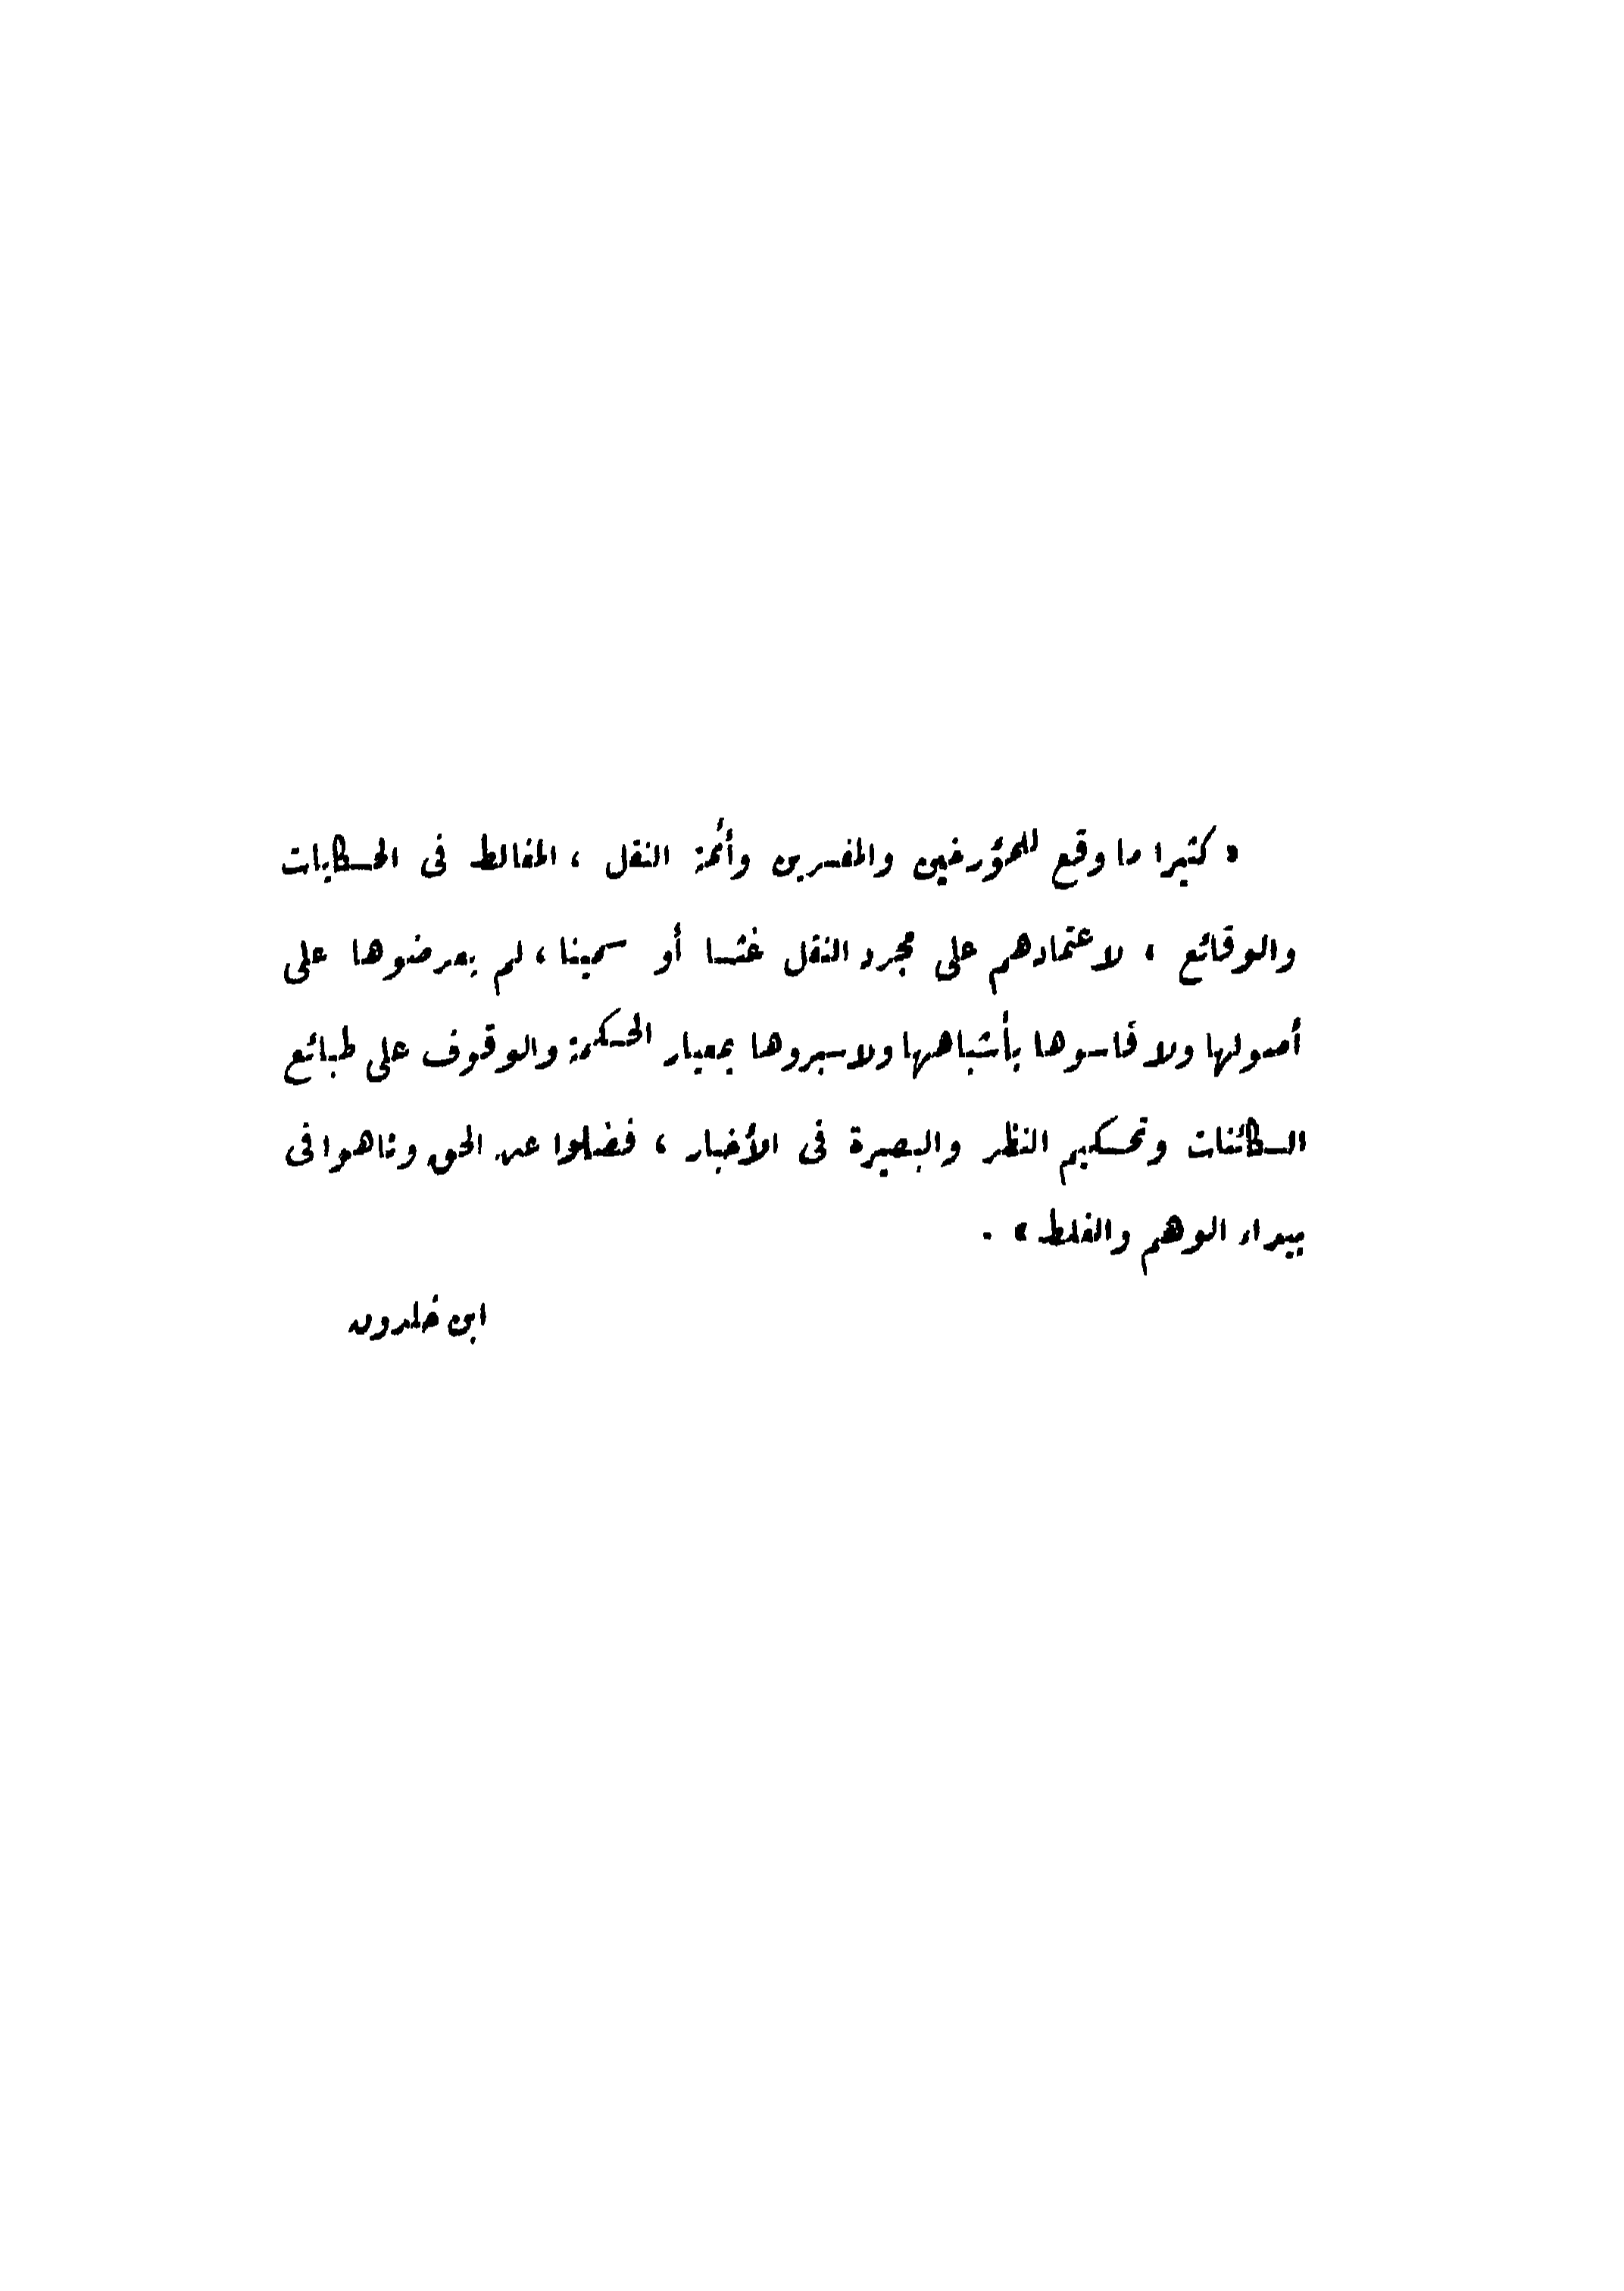 « كثيرا ما وقع للمؤرخين والمفسرين وأئمة النقل ، المغالط فى الحكايات
والوقائع ، لاعتمادهم على مجرد النقل غثا أو سمينا ، لم يعرضوها على
أصولها ولا قاسوها بأشباهها ولا سبروها بمعيار الحكمة والوقوف على طبائع
الكائنات وتحكيم النظر والبصيرة فى الأخبار ، فضلوا عن الحق وتاهوا فى
بيداء الوهم والغلط » .
ابن خلدون